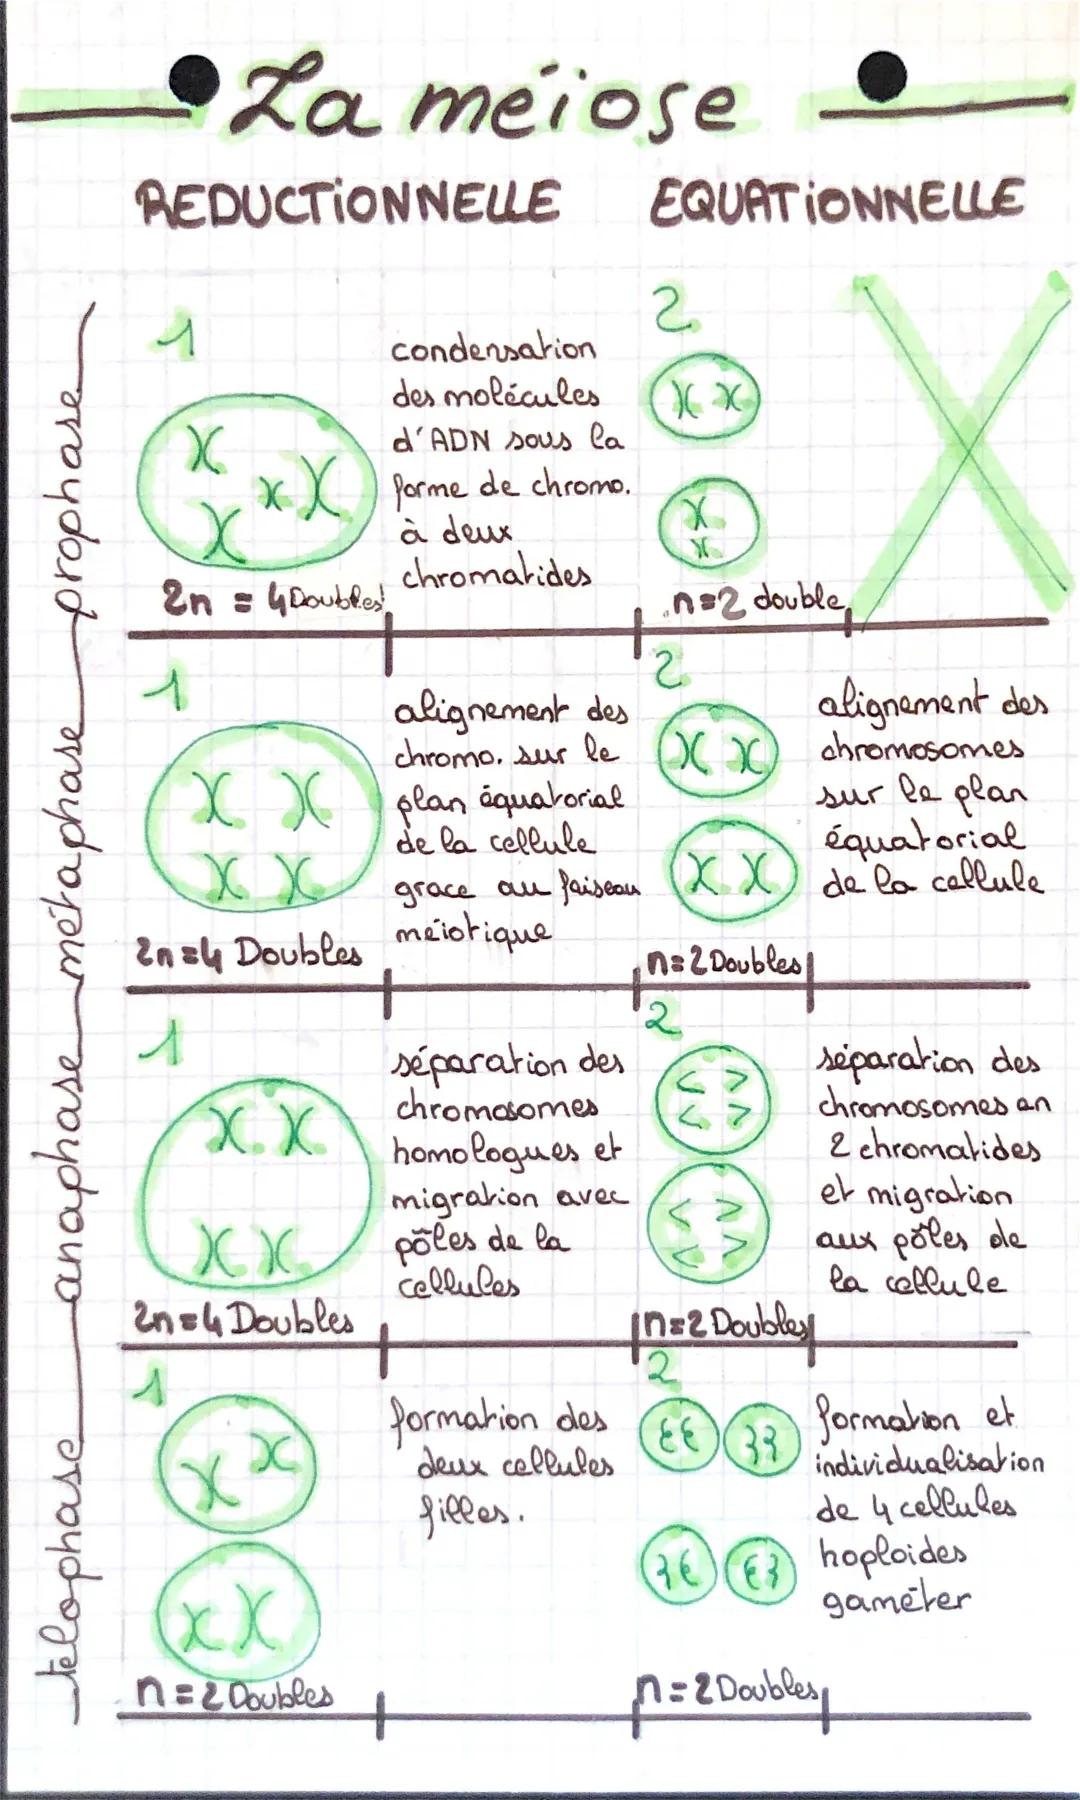 La méiose
REDUCTIONNELLE
EQUATIONNELLE
prophase
1
condensation
des molécules
d'ADN sous la
forme de chromo.
à deux
chromatides
2n = 4 Doubles
2
n=2 double
métaphase
1
alignement des
chromo. sur le
plan équatorial
de la cellule
grace au faiseau
méiotique
2n=4 Doubles
2
n=2 Doubles
alignement des
chromosomes
sur le plan
équatorial
de la cellule
anaphase
1
séparation des
chromosomes
homologues et
migration avec
pôles de la
cellules
2n=4 Doubles
2
n=2 Doubles
séparation des
chromosomes en
2 chromatides
et migration
aux pôles de
la cellule
telophase
1
formation des
deux cellules
filles.
n=2 Doubles
2
n=2 Doubles
formation et
individualisation
de 4 cellules
hoploides
gaméter